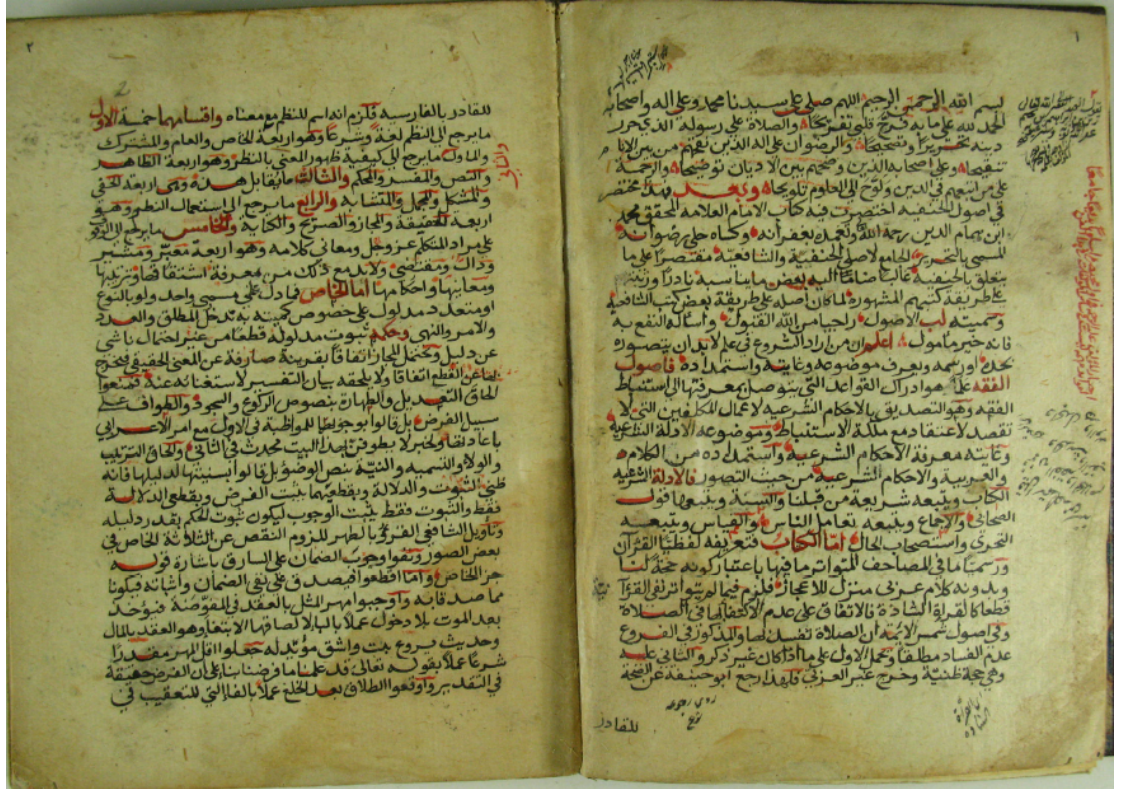 ١
بسم الله الرحمن الرحيم اللهم صلى على سيدنا محمد وعلى اله واصحابه
الحمد لله على ما به فرج قلبي تفريجا والصلاة على رسوله الذي حرر
دينه تحريرا وتصحيحا والرضوان على اله الذين نقحهم من بين الانام
تنقيحا وعلى اصحابه الذين وضحهم بين الاديان توضيحا والرحمة
على من اتبعهم في الدين ولوح الى العلوم تلويحا وبعد فهذا مختصر
في اصول الحنفيه اختصرت فيه كتاب الامام العلامة المحقق محمد
ابن همام الدين رحمه الله وتغمده بغفرانه وكساه حلى رضوانه
المسمى بالتحرير الجامع لاصلي الحنفية والشافعية مقتصرا على ما
يتعلق بالحنفية غالبا ضاما اليه بعض ما يناسبه نادرا ورتبته
على طريقة كتبهم المشهورة لما كان اصله على طريقة بعض كتب الشافعية
وسميته لب الاصول راجيا من الله القبول واساله النفع به
فانه خير مأمول اعلم ان من اراد الشروع في علم لابد ان يتصوره
بحده او رسمه ويعرف موضوعه وغايته واستمداده فاصول
الفقه علما هو ادراك القواعد التي يتوصل بمعرفتها الى استنباط
الفقه وهو التصديق بالاحكام الشرعيه لاعمال المكلفين التي لا
تقصد لاعتقاد مع ملكة الاستنباط وموضوعه الادلة الشرعية
وغايته معرفة الاحكام الشرعية واستمداده من الكلام
والعربية والاحكام الشرعية من حيث التصور فالادلة الشرعية
الكتاب ويتبعه شريعة من قبلنا والسنة ويتبعها قول
الصحابي والاجماع ويتبعه تعامل الناس والقياس ويتبعه
التحرى واستصحاب الحال اما الكتاب فتعريفه لفظيا القرآن
ورسميا ما في المصاحف المتواتر ما فيها باعتبار كونه حجة لنا
وبدونه كلام عربي منزل للاعجاز فلزم فيما لم يتواتر نفي القرآ
قطعا كالقراة الشاذة فالاتفاق على عدم الاكتفا بها في الصلاة
وفي اصول شمس الائمة ان الصلاة تفسد بها والمذكور في الفروع
عدم الفساد مطلقا وحمل الاول على ما اذا كان غير ذكر والثاني عليه
وهي حجة ظنية وخرج غير العربي فلهذا رجع ابو حنيفة عن الصحة
للقادر
٢
للقادر بالفارسية فلزم انه اسم للنظم مع معناه واقسامهما خمسة الاول
ما يرجع الى النظم لغة وشرعا وهو اربعة الخاص والعام والمشترك
والثاني
والماول ما يرجع الى كيفية ظهور المعنى بالنظر وهو اربعة الظاهر
والنص والمفسر والمحكم والثالث ما يقابل هذه وهي اربعة الخفي
والمشكل والمجمل والمتشابه والرابع ما يرجع الى استعمال النظم وهو
اربعة الحقيقة والمجاز والصريح والكناية والخامس ما يرجع الى الوقوف
على مراد المتكلم عز وجل ومعاني كلامه وهو اربعة معبر ومشير
ودال ومقتضى ولابد مع ذلك من معرفة اشتقاقها وترتيبها
ومعانيها واحكامها اما الخاص فما دل على مسمى واحد ولو بالنوع
او متعدد مدلول على خصوص كميته به فدخل المطلق والعدد
والامر والنهى وحكمه ثبوت مدلوله قطعا من غير احتمال ناشى
عن دليل ويحتمل المجاز اتفاقا بقرينة صارفة عن المعنى الحقيقي فتخرج
عن القطع اتفاقا ولا يلحقه بيان التفسير لاستغنائه عنه فمنعوا
الحاق التعديل والطهارة بنصوص الركوع والسجود والطواف على
سبيل الفرض بل قالوا بوجوبها للمواظبة في الاول مع امر الاعرابي
باعادتها ولخبر لا يطوفن بهذا البيت محدث في الثاني والحاق الترتيب
والولا والتسميه والنية بنص الوضو بل قالوا بسنيتها لدليلها فانه
ظني الثبوت والدلالة وبقطعيهما يثبت الفرض وبقطعي الدلالة
فقط والثبوت فقط يثبت الوجوب ليكون ثبوت الحكم بقدر دليله
وتأويل الشافعي القرء بالطهر للزوم النقص عن الثلاثة الخاص في
بعض الصور ونفوا وجوب الضمان على السارق باشارة قوله
جزا الخاص واما اقطعوا فيصدق على نفي الضمان واثباته فيكونا
مما صدقا به واوجبوا مهر المثل بالعقد في المفوضة فيؤخذ
بعد الموت بلا دخول عملا بالبا لالصاقها الابتغا وهو العقد بالمال
وحديث بروع بنت واشق مؤيد له جعلوا اقل المهر مقدرا
شرعا عملا بقوله تعالى قد علمنا ما فرضنا بنا على ان الفرض حقيقة
في التقدير واوقعوا الطلاق بعد الخلع عملا بالفا التي للتعقيب في